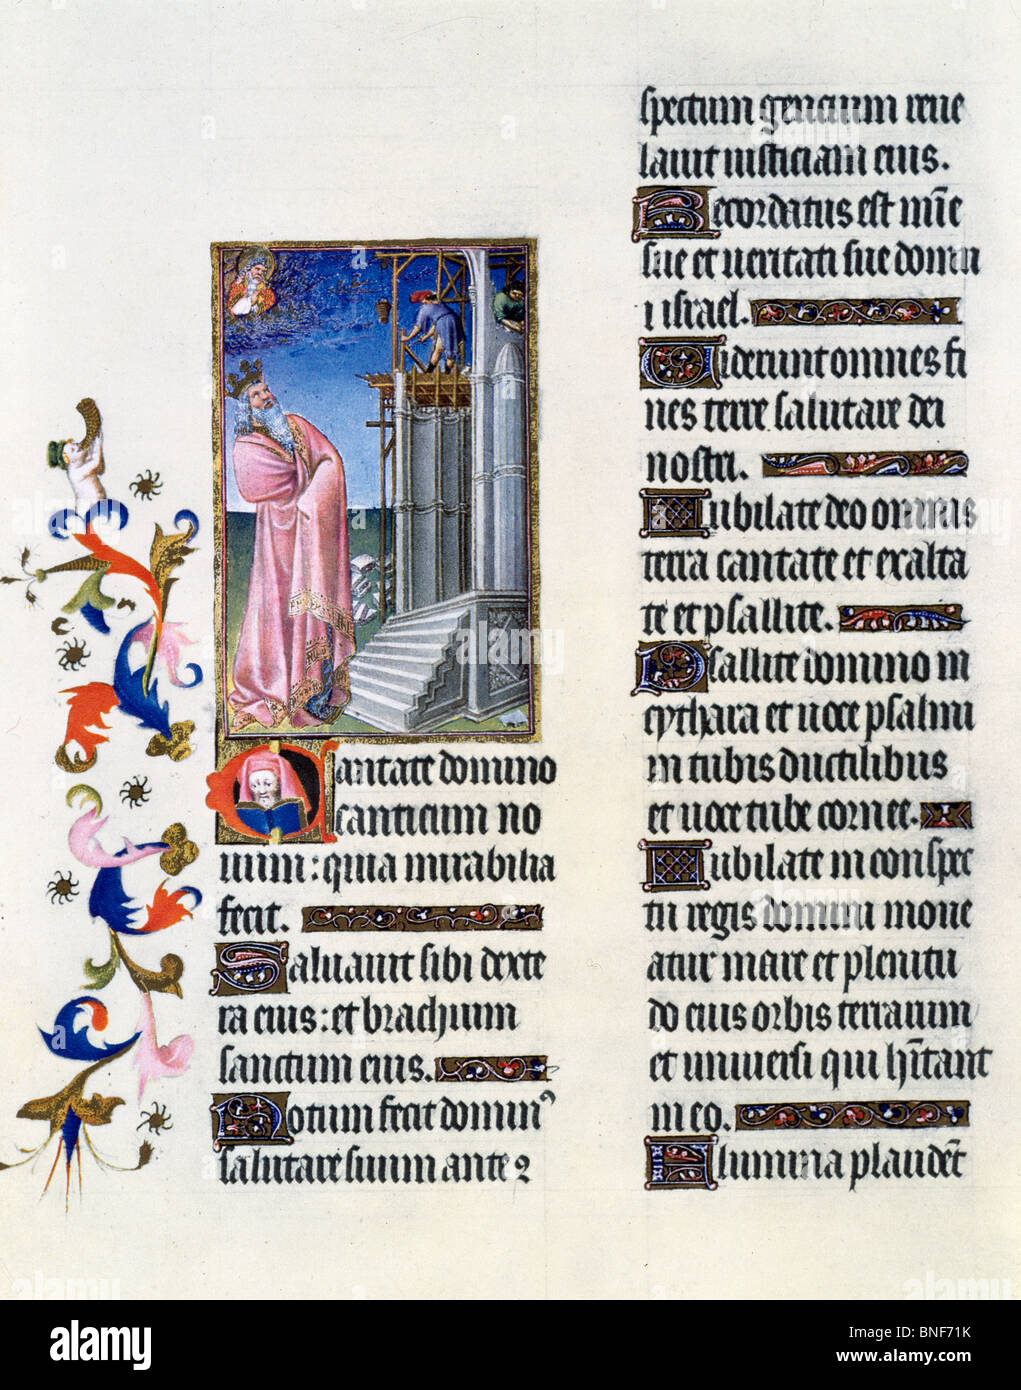 Cantate domino
canticum no
uum: quia mirabilia
fecit.
Saluauit sibi dexte
ra eius: et brachium
sanctum eius.
Notum fecit domin⁹
salutare suum ante ꝯ
spectum gencium reue
lauit iusticiam eius.
Recordatus est mīe
sue et ueritati sue domu
i israel.
Uiderunt omnes fi
nes terre salutare dei
nostri.
Iubilate deo omnis
terra cantate et exalta
te et psallite.
Psallite domino in
cythara et uoce psalmi
in tubis ductilibus
et uoce tube cornee.
Iubilate in conspec
tu regis domini moue
atur mare et plenitu
do eius orbis terrarum
et uniuersi qui hītant
in eo.
Flumina plaudēt
alamy
Image ID: BNF71K
www.alamy.com